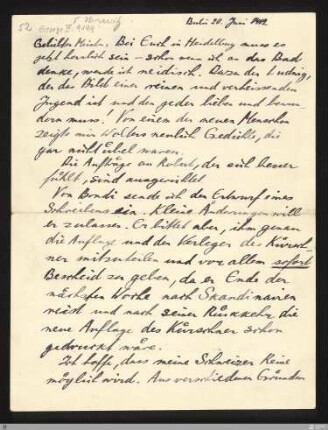 52
George III, 9199
Berlin 20. Juni 1912
Geliebter Meister, Bei Euch in Heidelberg muss es
jetzt herrlich sein – schon wenn ich an das Bad
denke, werde ich neidisch. Dazu der Ludwig,
der das Bild einer reinen und verheissenden
Jugend ist und den jeder lieben und bewun-
dern muss! Von einem der neuen Menschen
zeigte mir Wolters neulich Gedichte, die
gar nicht übel waren.
Die Aufträge an Robert, der sich besser
fühlt, sind ausgerichtet.
Von Bondi sende ich den Entwurf eines
Schreibens ein. Kleine Änderungen will
er zulassen. Er bittet aber, ihm genau
die Auflage und den Verleger des Kürsch-
ner mitzuteilen und vor allem sofort
Bescheid zu geben, da er Ende der
nächsten Woche nach Skandinavien
reist und nach seiner Rückkehr die
neue Auflage des Kürschner schon
gedruckt wäre.
Ich hoffe, dass meine Schweizer Reise
möglich wird. Aus verschiedenen Gründen